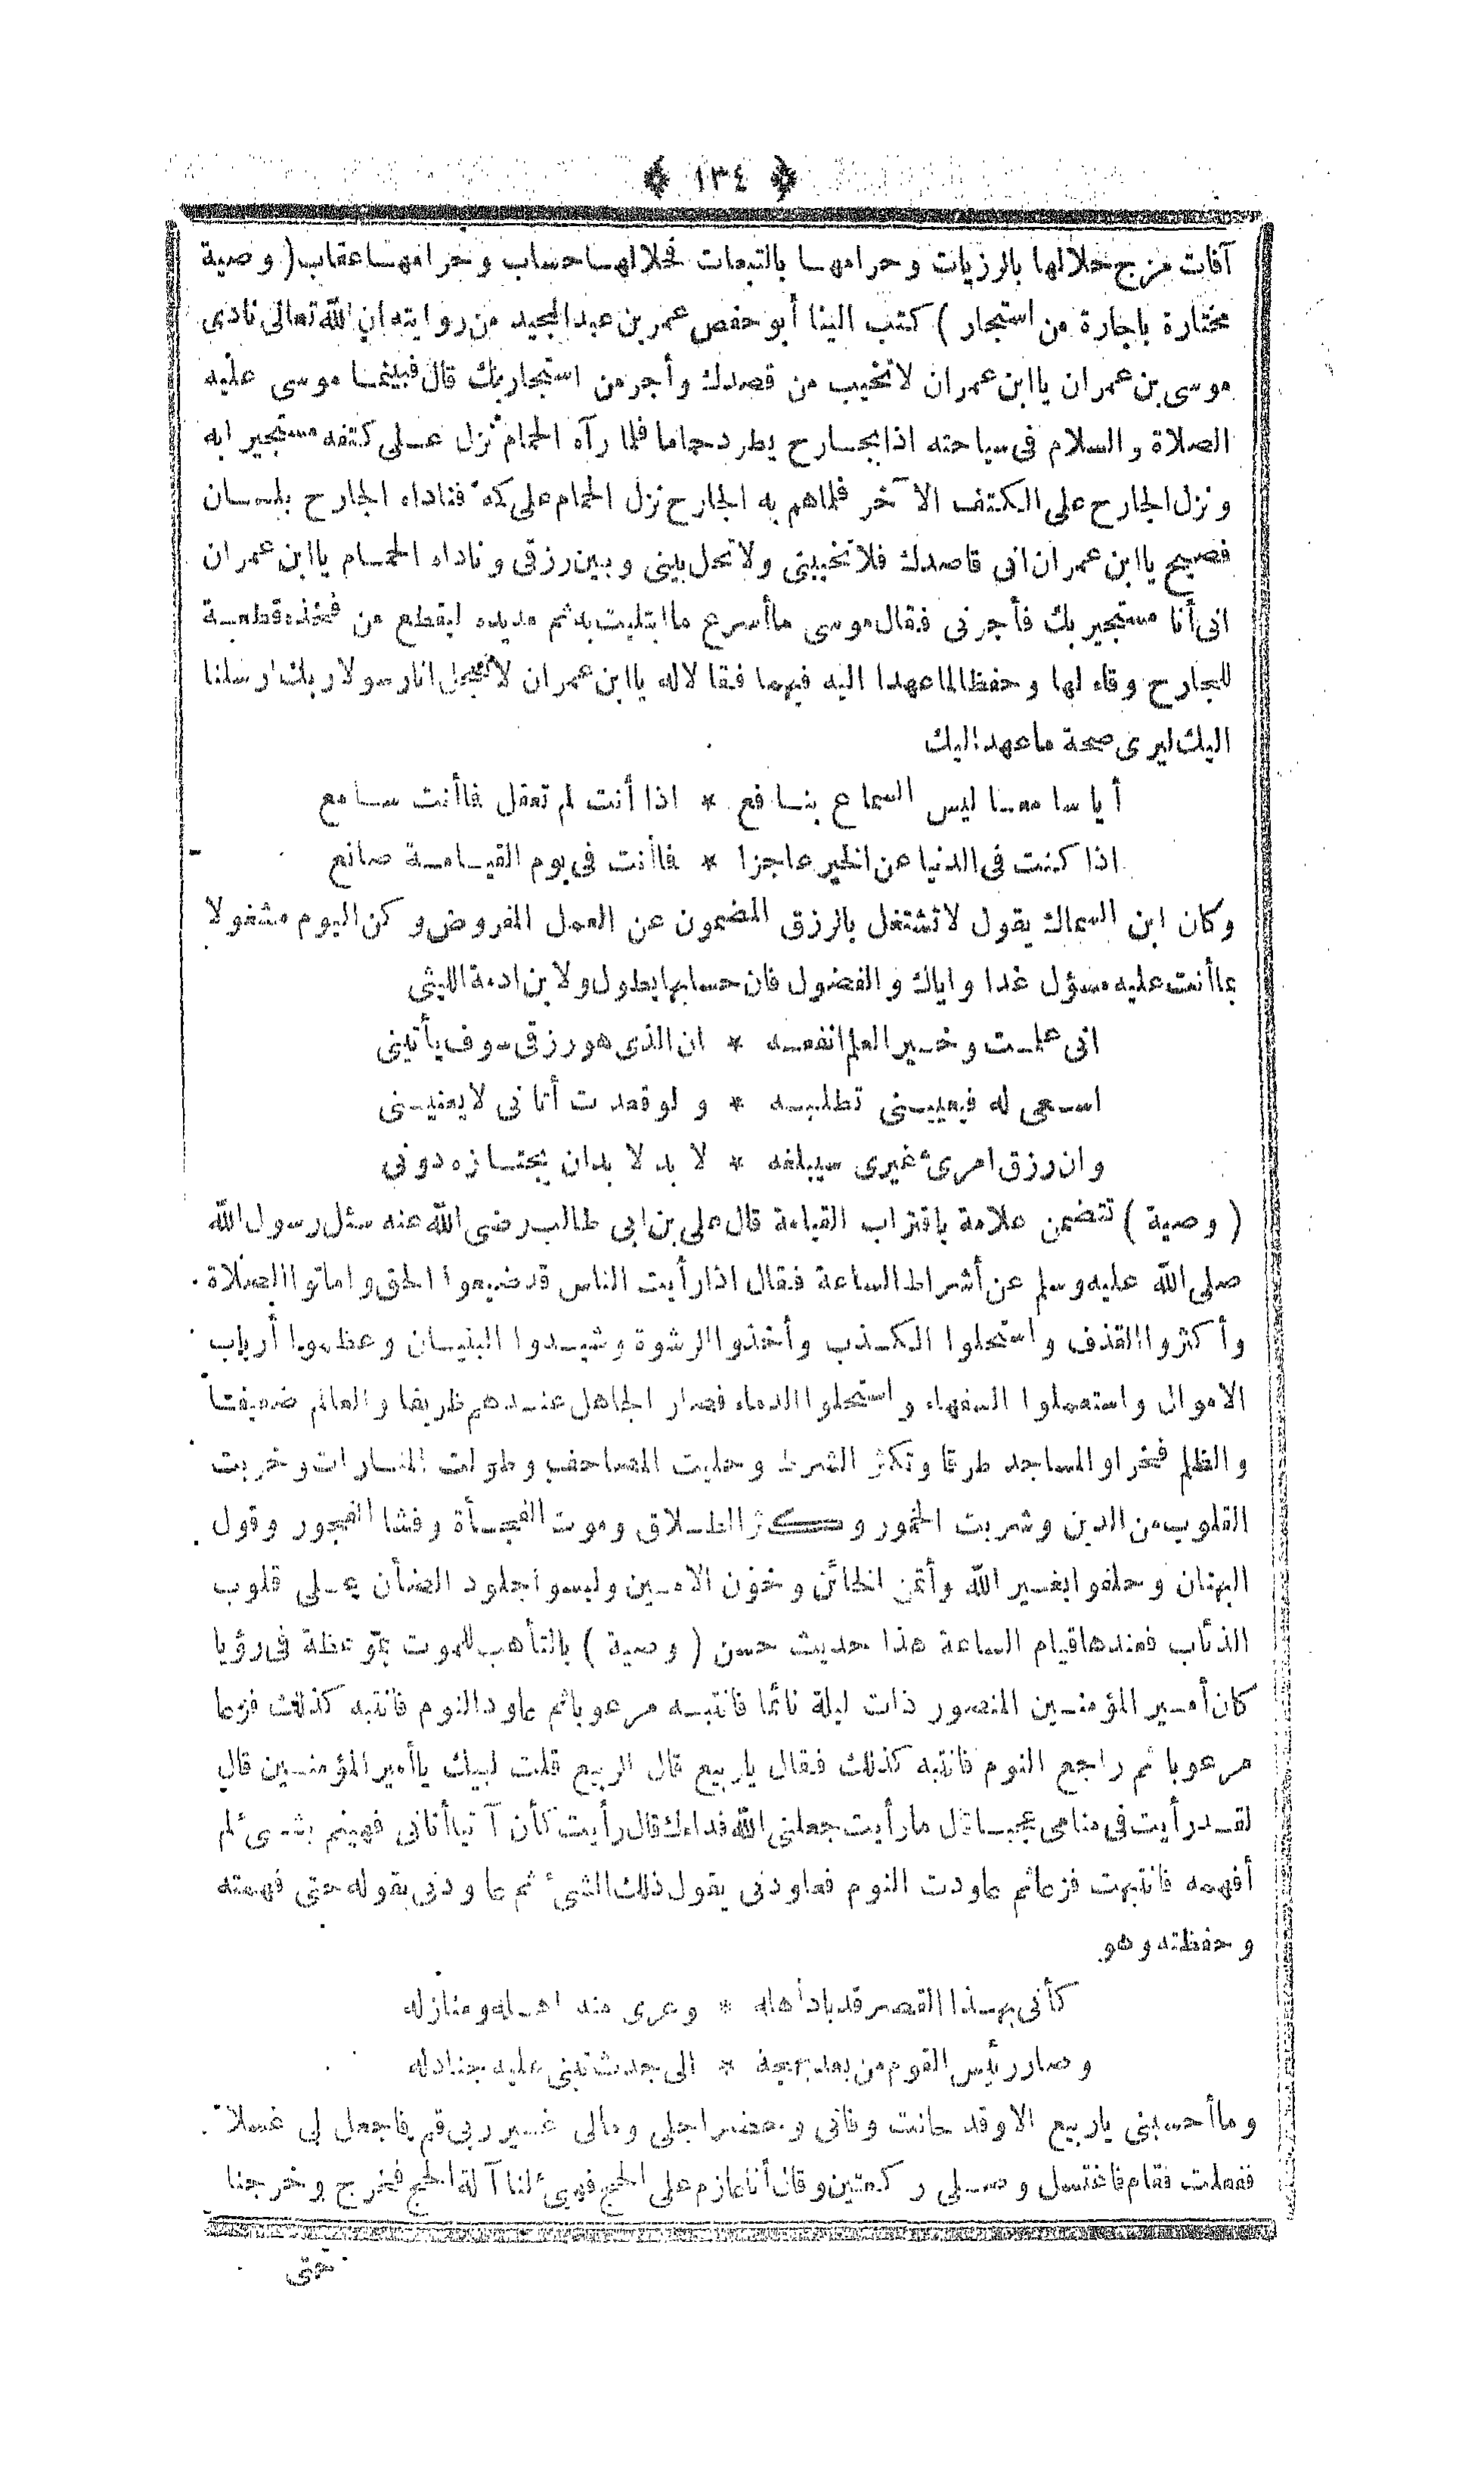 ﴿ ١٣٤ ﴾
آفات مزج حلالها بالرزيات وحرامها بالتبعات فحلالها حساب وحرامها عقاب (وصية
مختارة باجارة من استجار ) كتب الينا أبو حفص عمر بن عبد المجيد من روايته ان الله تعالى نادى
موسى بن عمران يا ابن عمران لا تخيب من قصدك وأجر من استجار بك قال فبينما موسى عليه
الصلاة والسلام فى سياحته اذا بجارح يطرد حماما فلما رآه الحمام نزل على كتفه مستجيرا به
ونزل الجارح على الكتف الآخر فلما هم به الجارح نزل الحمام على كمه فناداه الجارح بلسان
فصيح يا ابن عمران انى قاصدك فلا تخيبنى ولا تحل بينى وبين رزقى وناداه الحمام يا ابن عمران
انى أنا مستجير بك فأجرنى فقال موسى ما أسرع ما ابتليت به ثم مد يده ليقطع من فخذه قطعة
للجارح وقاء لها وحفظا لما عهدا اليه فيهما فقالا له يا ابن عمران لا تعجل انا رسولا ربك ارسلنا
اليك ليرى صحة ما عهد اليك
أيا سامعا ليس السماع بنافع * اذا أنت لم تعقل فما أنت سامع
اذا كنت فى الدنيا عن الخير عاجزا * فما أنت فى يوم القيامة صانع
وكان ابن السماك يقول لا تشتغل بالرزق المضمون عن العمل المفروض وكن اليوم مشغولا
بما أنت عليه مسؤل غدا واياك والفضول فان حسابها يطول ولابن ادمة الليثى
انى علمت وخير العلم انفعه * ان الذى هو رزقى سوف يأتينى
اسعى له فيعيينى تطلبه * ولو قعدت أتانى لا يعنينى
وان رزق امرئ غيرى سيبلغه * لا بد لا بد ان يجتازه دونى
( وصية ) تتضمن علامة باقتراب القيامة قال على بن ابى طالب رضى الله عنه سئل رسول الله
صلى الله عليه وسلم عن أشراط الساعة فقال اذا رأيت الناس قد ضيعوا الحق واماتوا الصلاة
وأكثروا القذف واستحلوا الكذب وأخذوا الرشوة وشيدوا البنيان وعظموا أرباب
الاموال واستعملوا السفهاء واستحلوا الدماء فصار الجاهل عندهم ظريفا والعالم ضعيفا
والظلم فخرا والمساجد طرقا وتكثر الشرط وحليت المصاحف وطولت المنارات وخربت
القلوب من الدين وشربت الخمور وكثر الطلاق وموت الفجأة وفشا الفجور وقول
البهتان وحلفوا بغير الله وأتمن الخائن وخون الامين ولبسوا جلود الضأن على قلوب
الذئاب فعندها قيام الساعة هذا حديث حسن ( وصية ) بالتأهب للموت بموعظة فى رؤيا
كان أمير المؤمنين المنصور ذات ليلة نائما فانتبه مرعوبا ثم عاود النوم فانتبه كذلك فزعا
مرعوبا ثم راجع النوم فانتبه كذلك فقال ياربيع قال الربيع قلت لبيك يا أمير المؤمنين قال
لقد رأيت فى منامى عجبا قال ما رأيت جعلنى الله فداءك قال رأيت كأن آتيا أتانى فهينم بشىء لم
أفهمه فانتبهت فزعا ثم عاودت النوم فعاودنى يقول ذلك الشئ ثم عاودنى بقوله حتى فهمته
وحفظته وهو
كأنى بهذا القصر قد باد أهله * وعرى منه اهله ومنازله
وصار رئيس القوم من بعد بهجة * الى جدث تبنى عليه جنادله
وما أحسبنى ياربيع الا وقد حانت وفاتى وحضر اجلى ومالى غير ربى قم فاجعل لى غسلا
ففعلت فقام فاغتسل وصلى ركعتين وقال أنا عازم على الحج فهيئ لنا آلة الحج فخرج وخرجنا
حتى